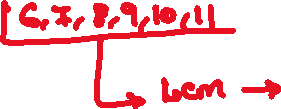 6,7,8,9,10,11
Lcm →